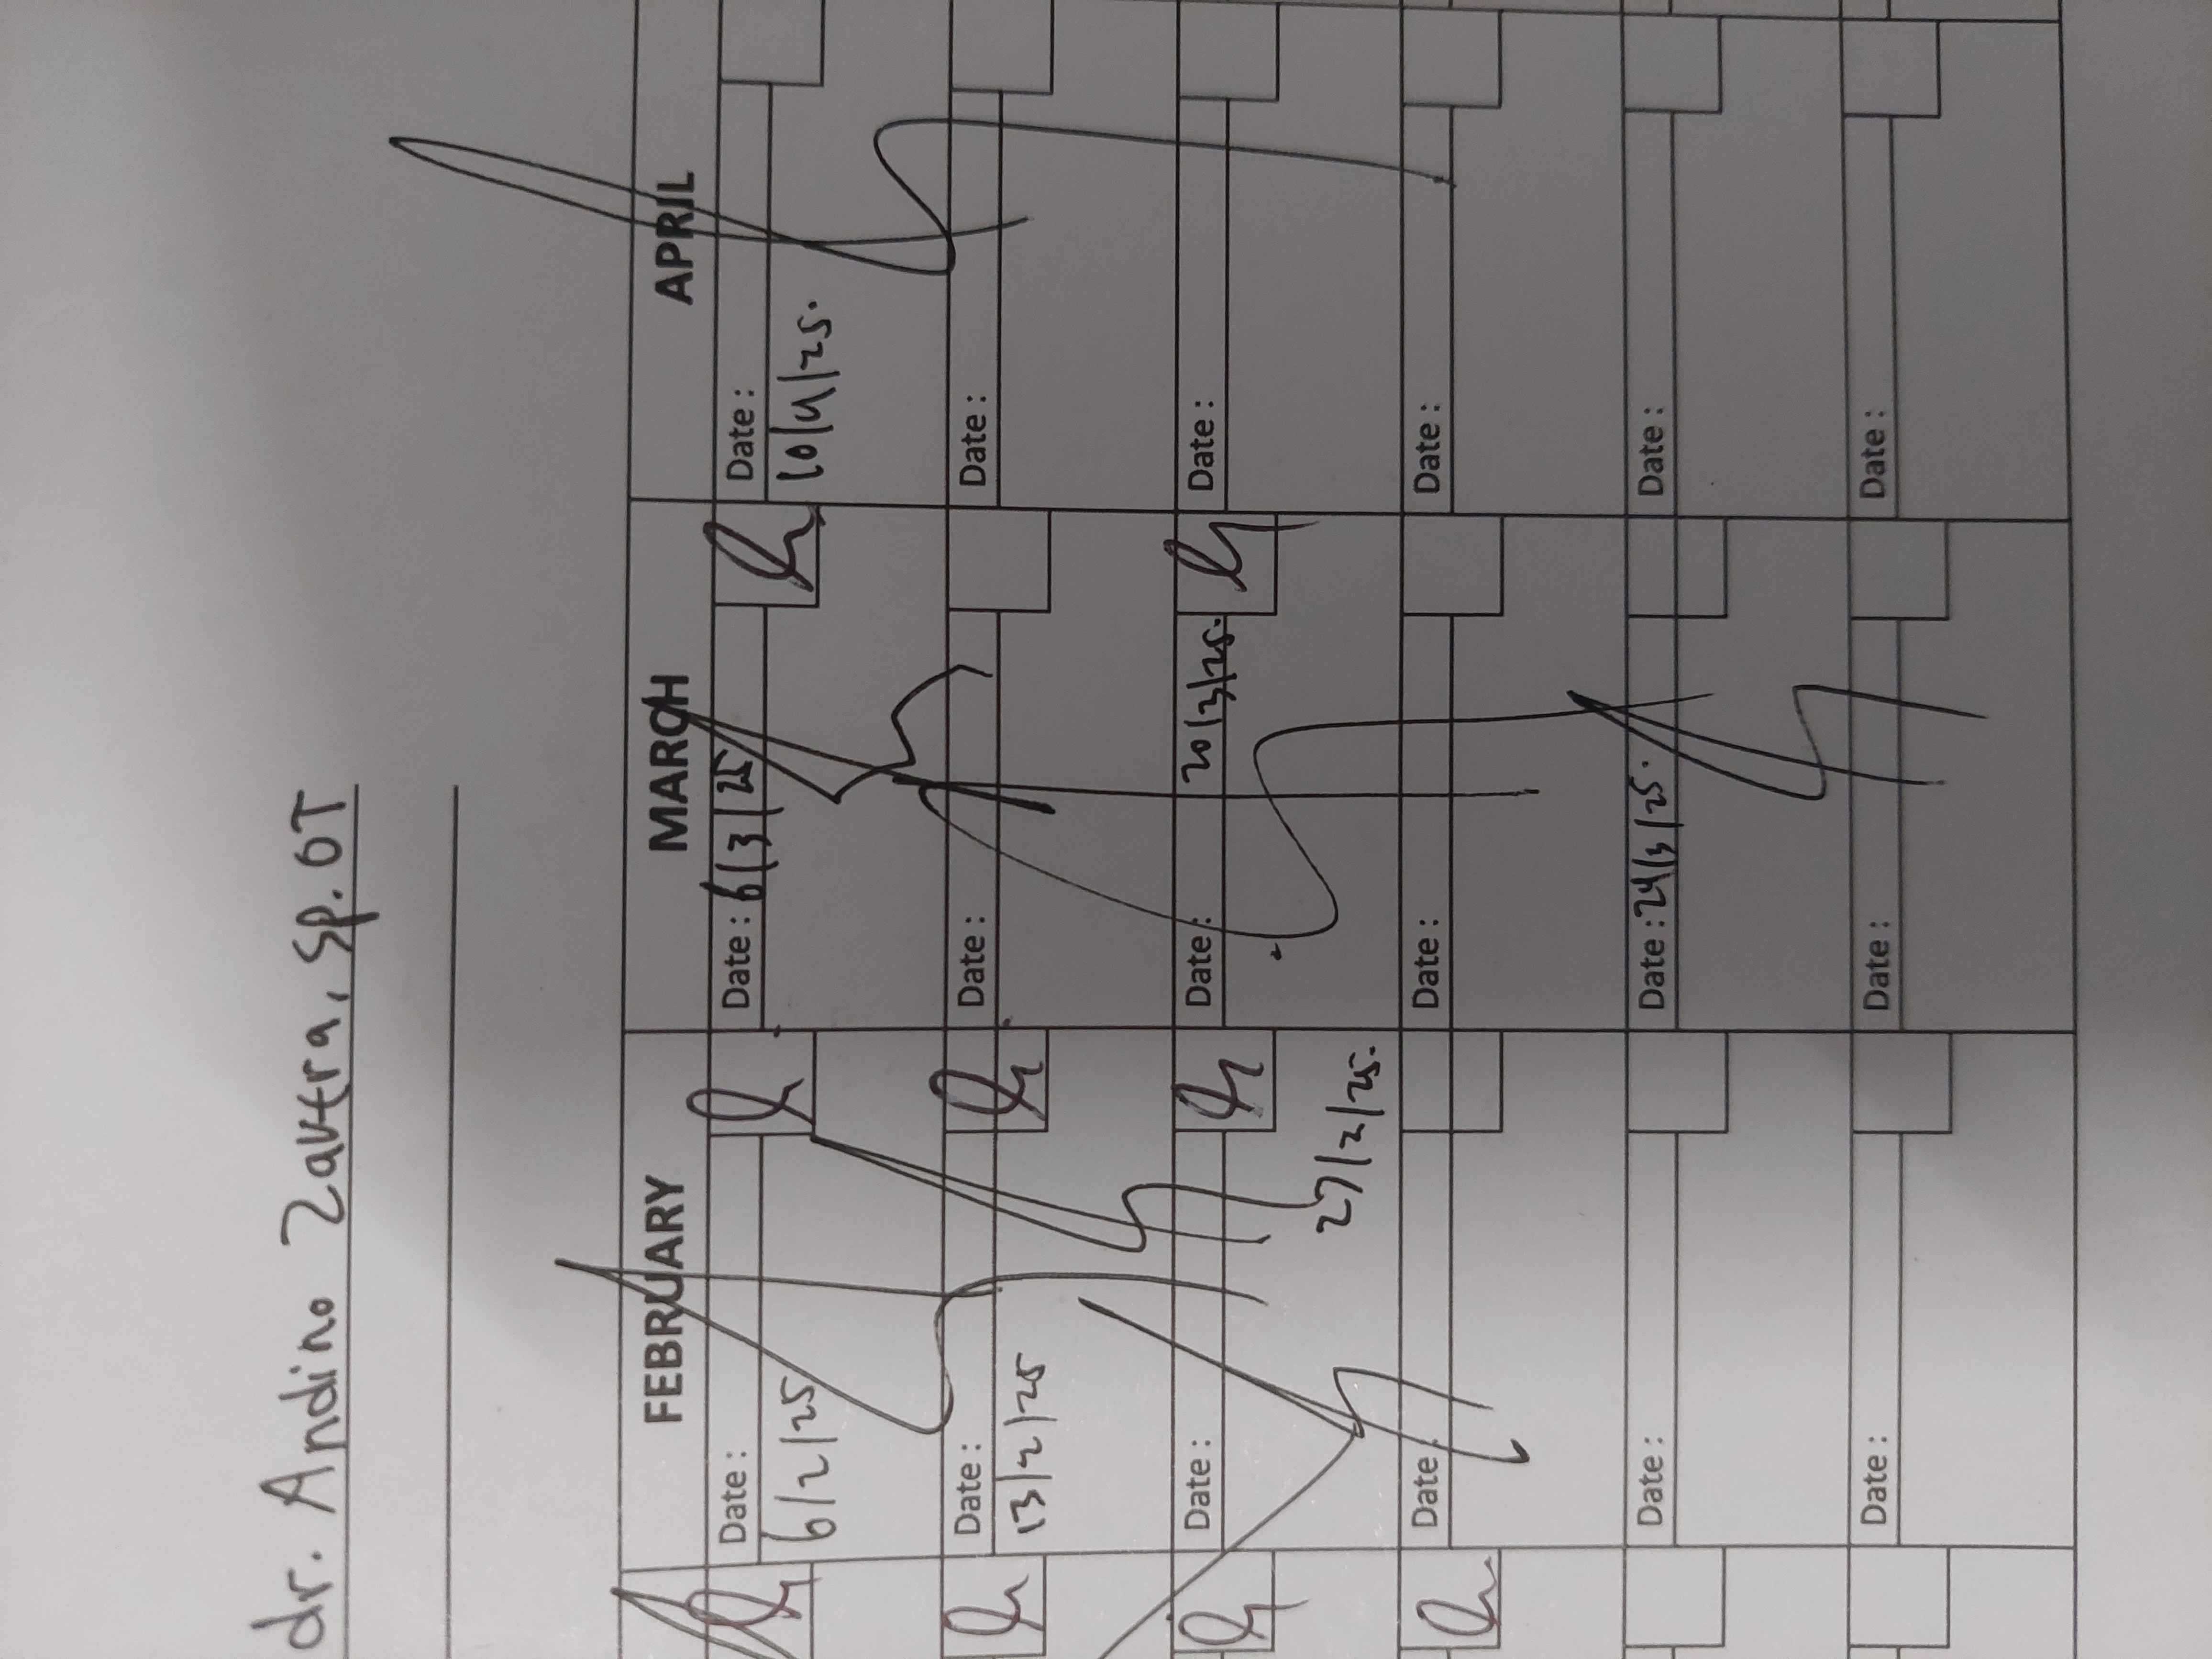 dr. Andino Zavtra, Sp.OT
FEBRUARY MARCH APRIL
Date : Date : 6/3/25 Date :
6/2/25 10/4/25.
Date : Date : Date :
13/2/25
Date : Date : 20/3/25. Date :
27/2/25.
Date Date : Date :
Date : Date : 24/3/25. Date :
Date : Date : Date :